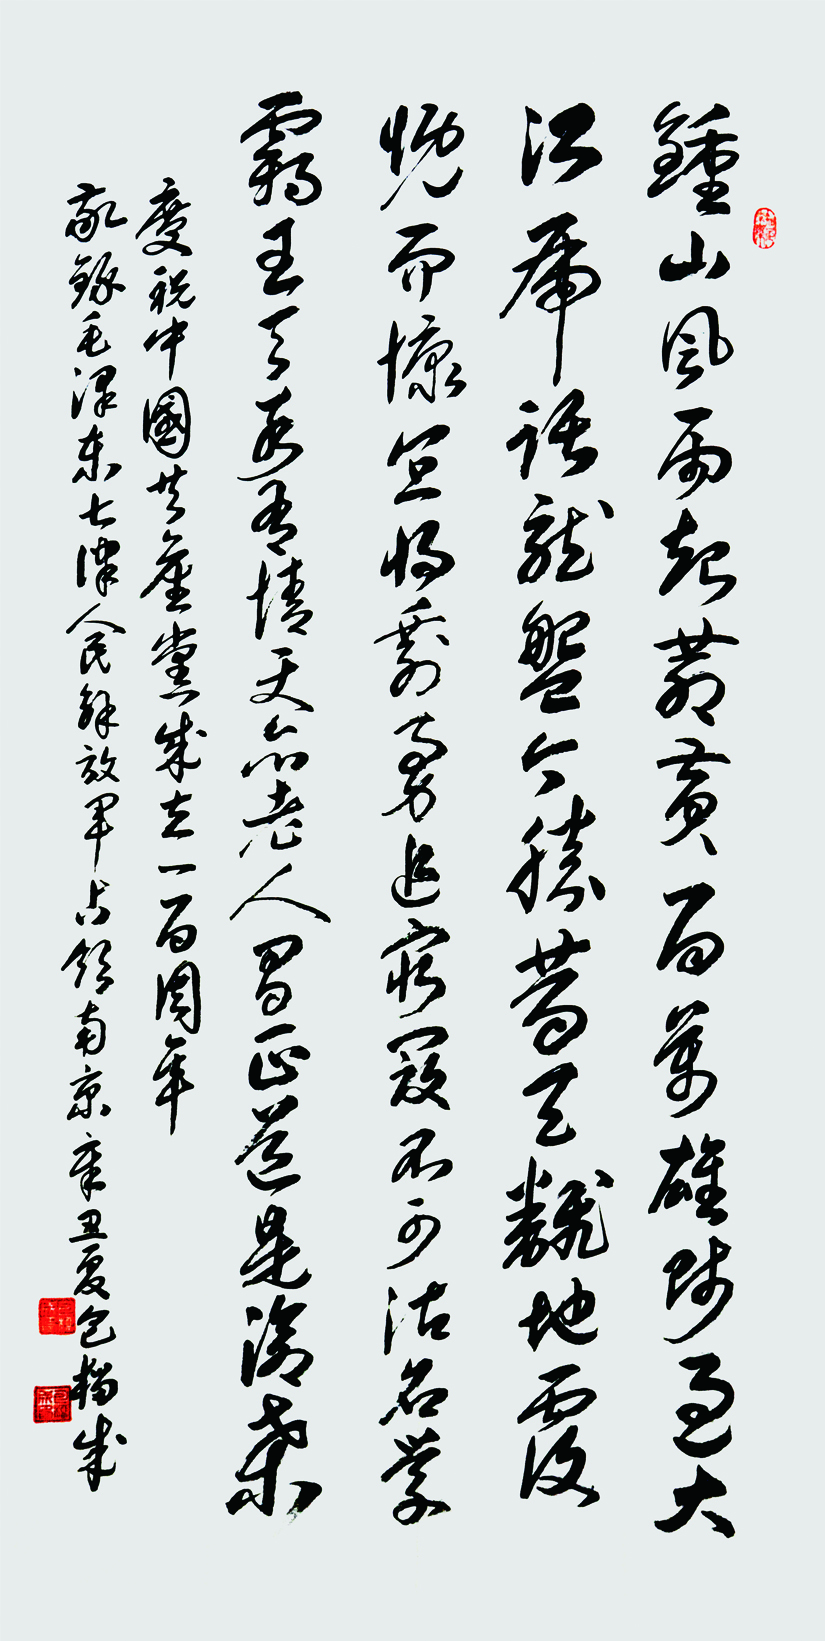 鍾山風雨起蒼黃百萬雄師過大
江虎踞龍盤今勝昔天翻地覆
慨而慷宜將剩勇追窮寇不可沽名學
霸王天若有情天亦老人間正道是滄桑
慶祝中國共產黨成立一百周年
敬錄毛澤東七律人民解放軍占領南京辛丑夏包